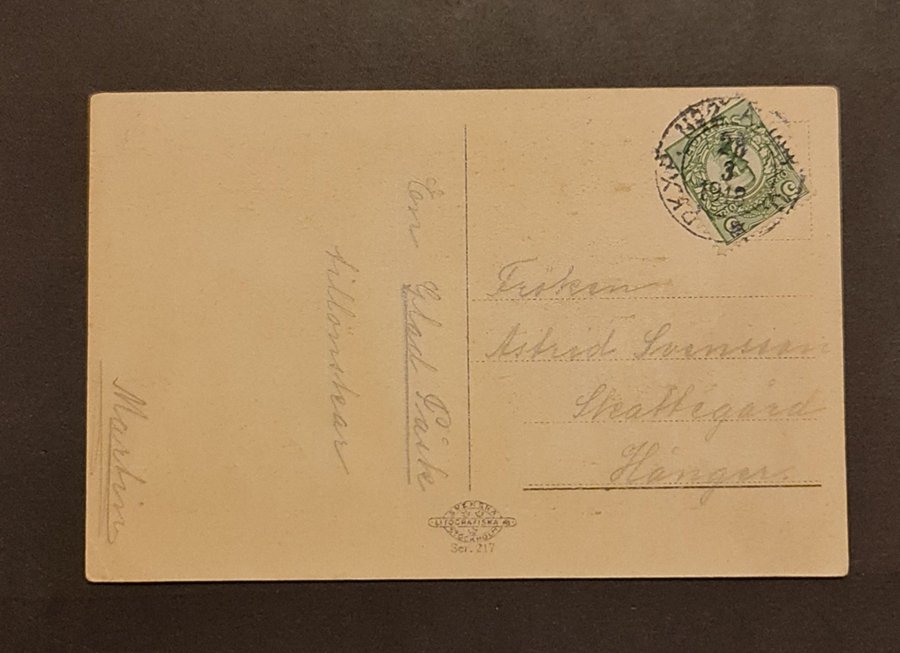 En
Glad Påsk
tillönskar
Martin
Fröken
Astrid Svensson
Skattegård
Hånger.
28
3
1918
SVENSKA
LITOGRAFISKA A.B.
STOCKHOLM
Ser. 217